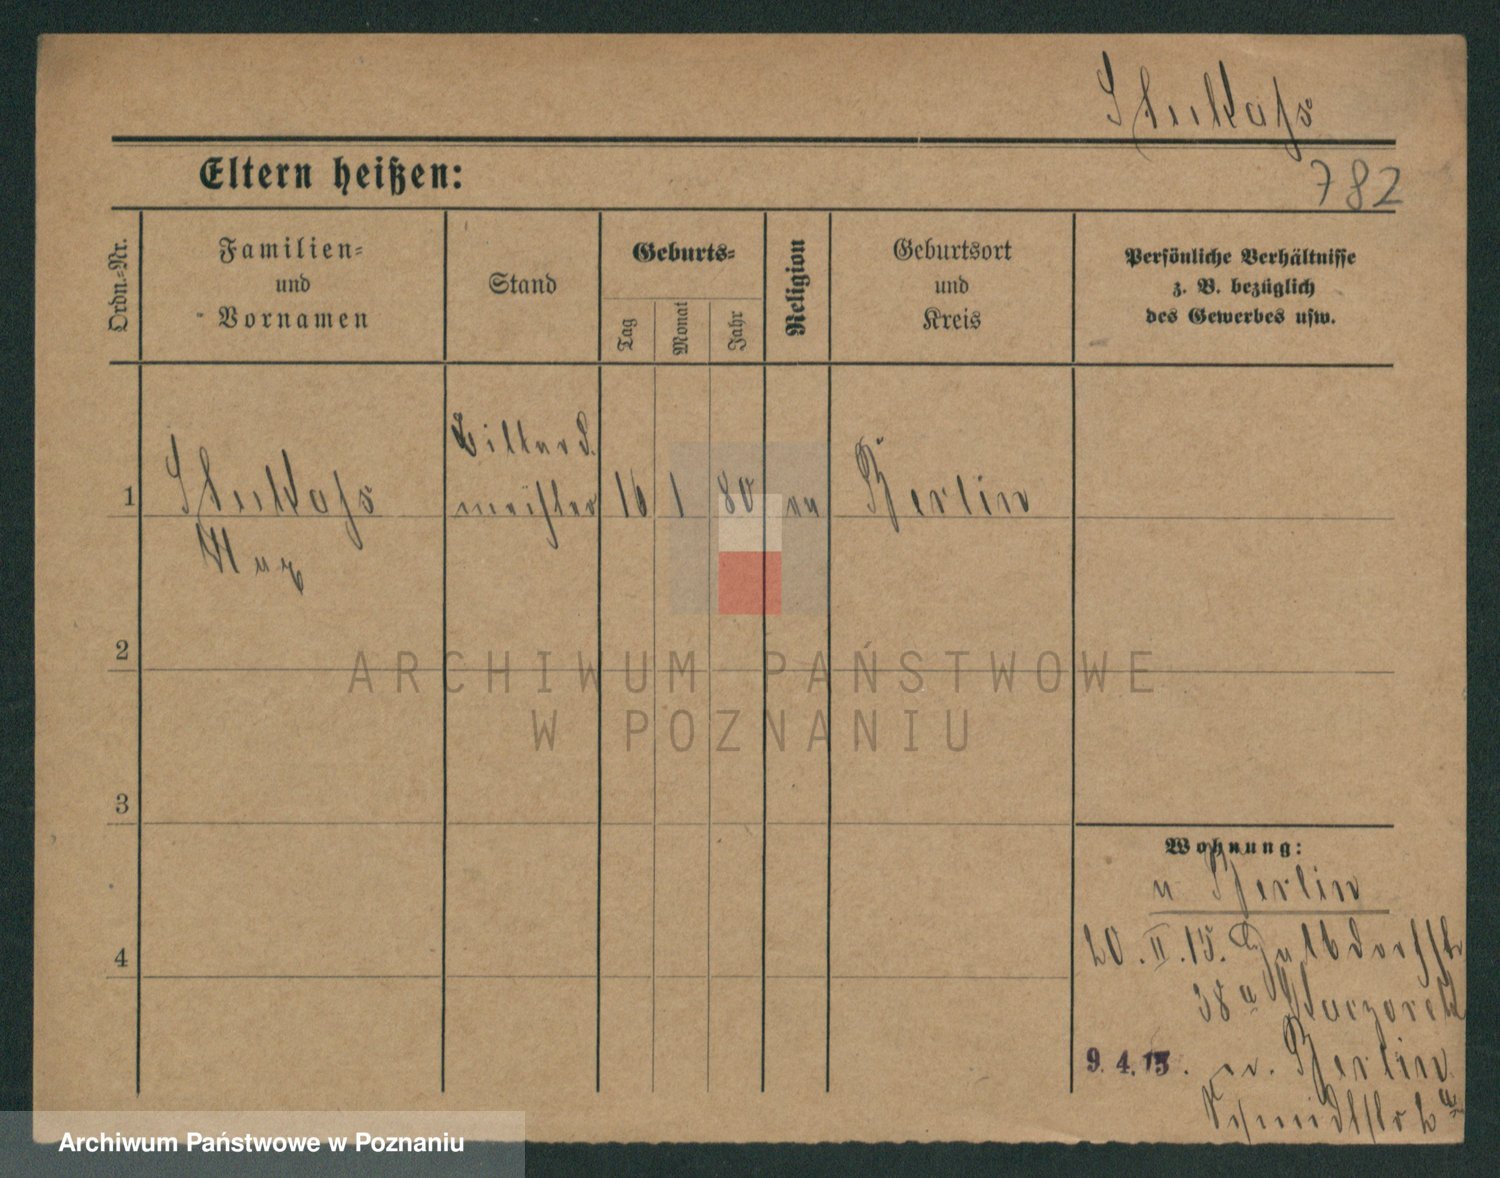 782
Eltern heißen:
Ordn.-Nr.
Familien-
und
Vornamen
Stand
Geburts-
Tag
Monat
Jahr
Religion
Geburtsort
und
Kreis
Persönliche Verhältnisse
z. B. bezüglich
des Gewerbes usw.
Billard.
1 meister 16 1 80 ev Berlin
Max
2
ARCHIWUM PAŃSTWOWE
W POZNANIU
3
Wohnung:
n Berlin
4
20.II.15.
38a
9.4.15. Berlin
Archiwum Państwowe w Poznaniu